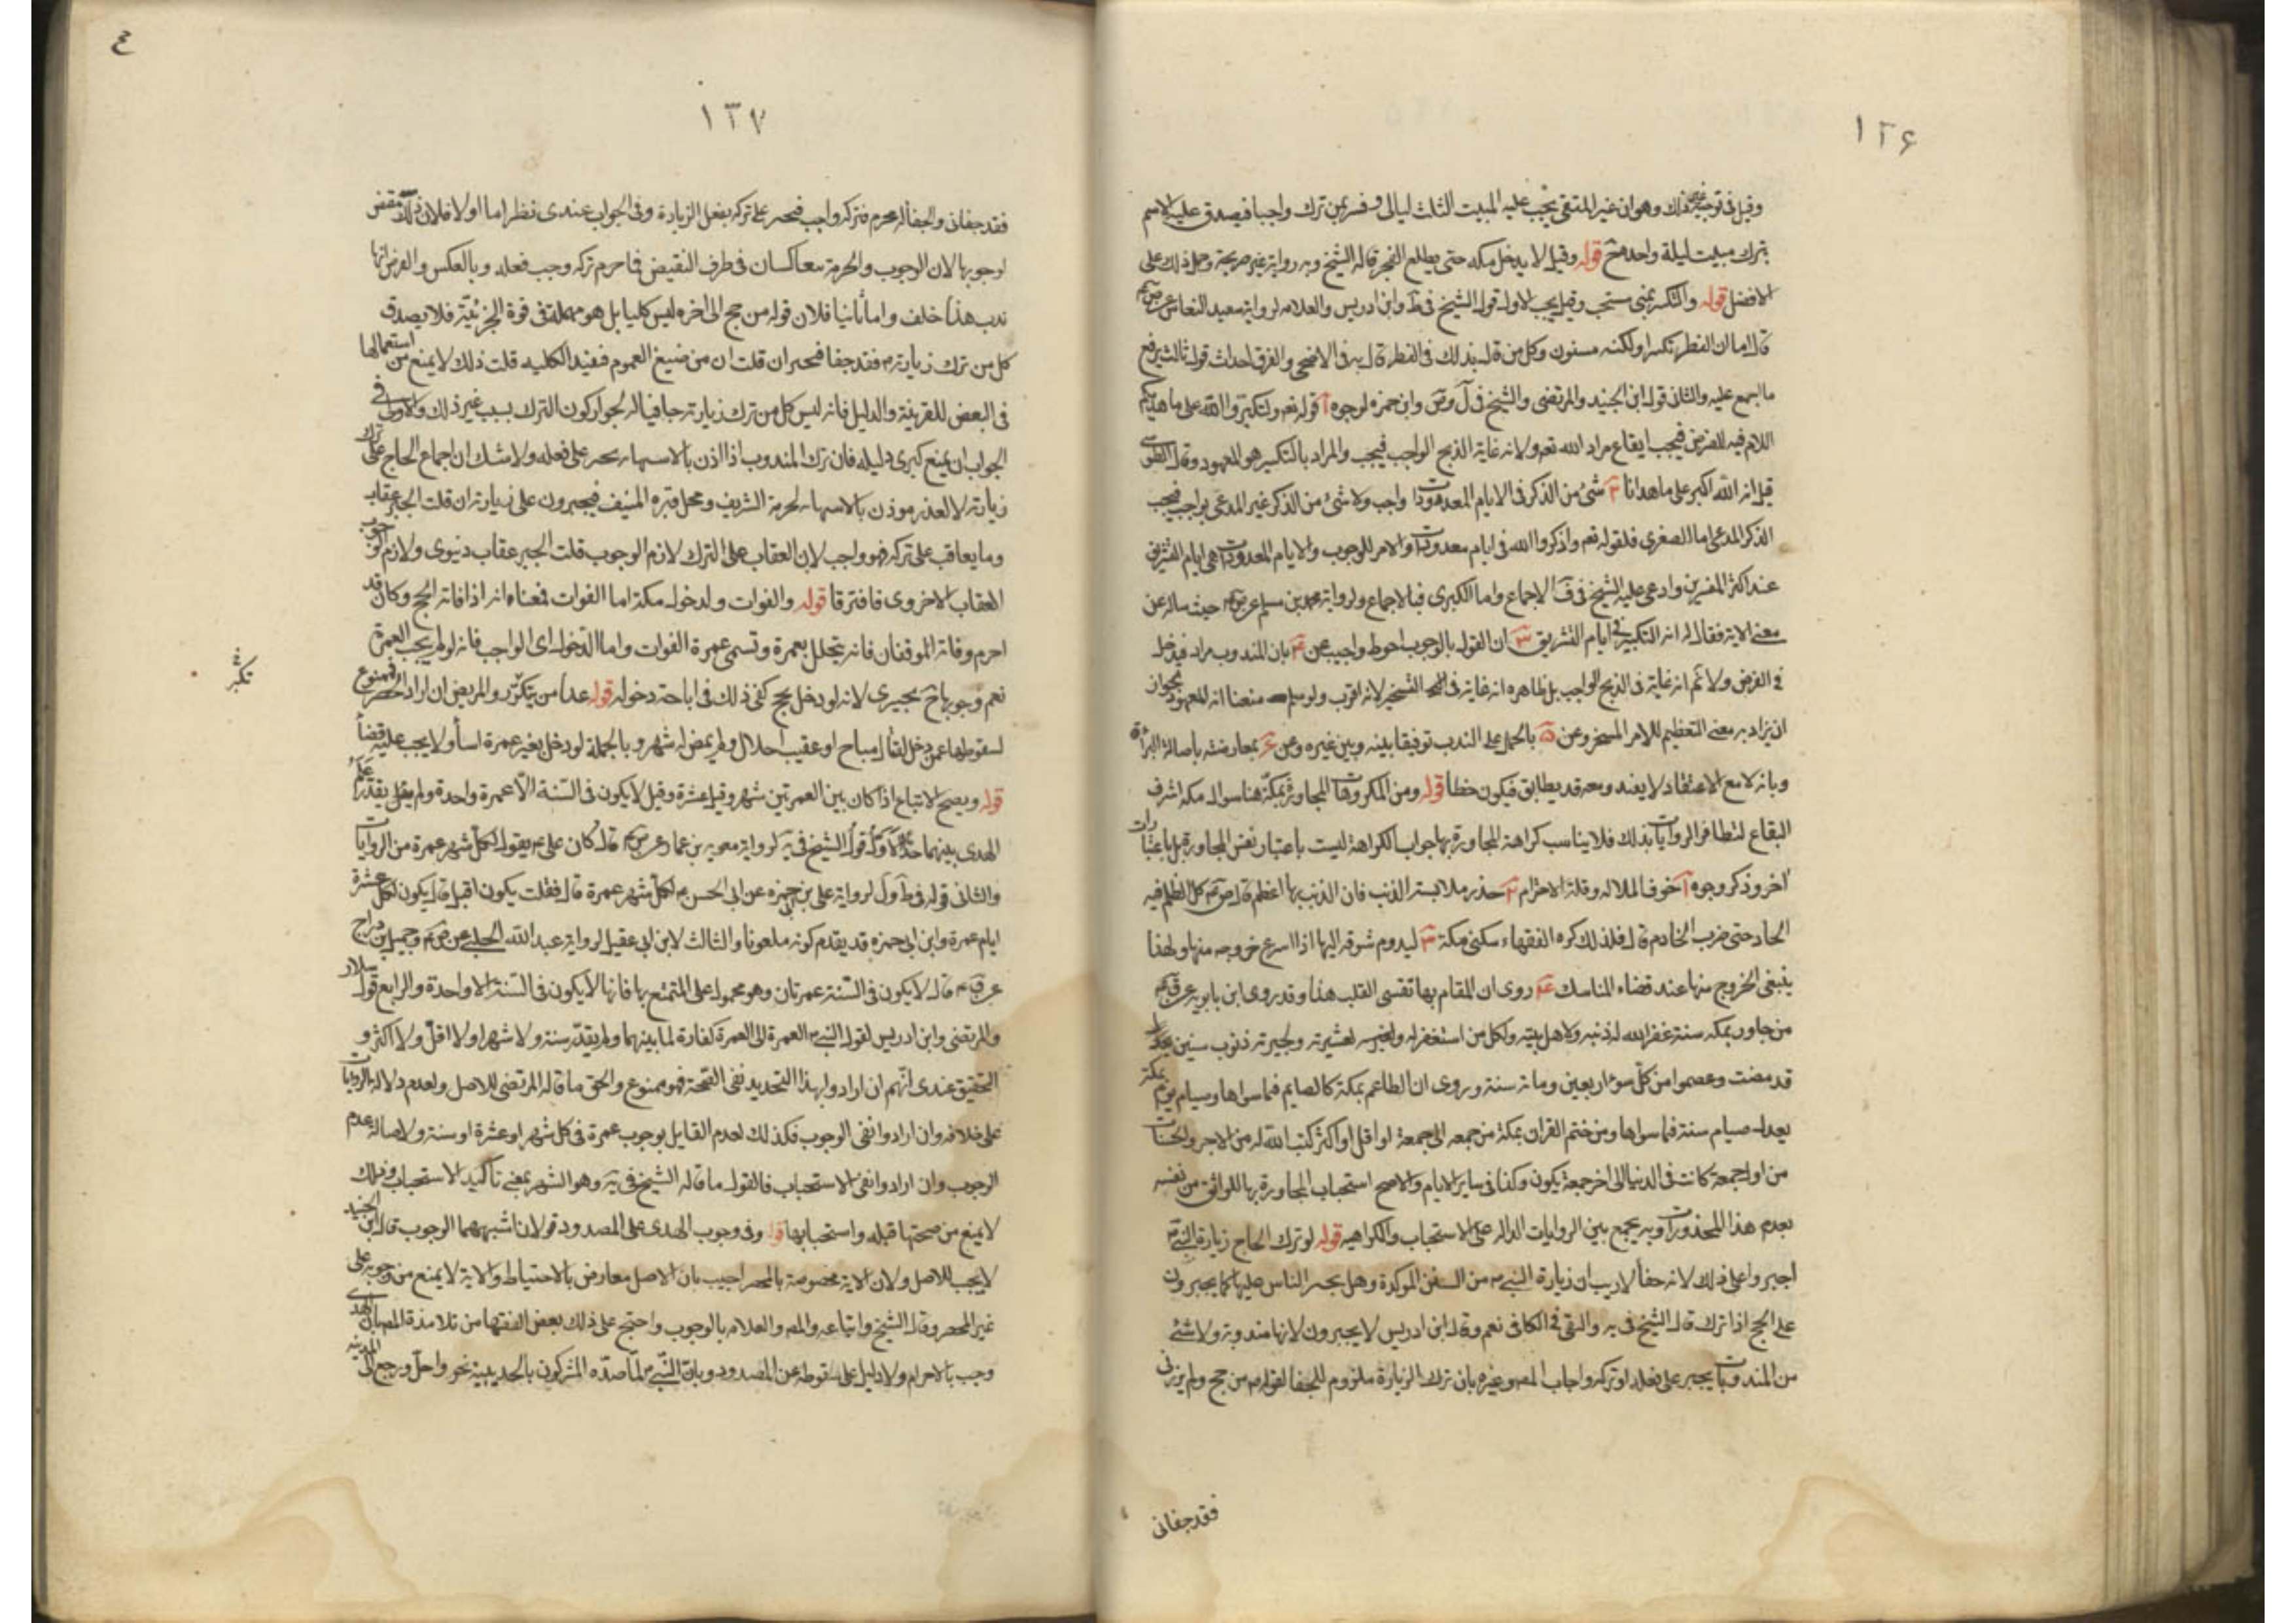 ١٢۶
وقيل فى توجيهه غير ذلك وهو ان غير المتقى يجب عليه المبيت الثلث ليالى وفسر بمن ترك واجبا فيصدق عليه الاسم
بترك مبيت ليلة واحدة قوله وقيل لا يدخل مكه حتى يطلع الفجر قاله الشيخ وبه رواية غير صريحة وحمل ذلك على
الافضل قوله والتكبير بمنى مستحب وقيل يجب الاول قول الشيخ فى ط وابن ادريس والعلامه لرواية سعيد النقاش عن ص م
قال اما ان الفطر تكبيرا ولكنه مسنون وكل من قال بذلك فى الفطر قال به فى الاضحى والفرق احداث قول ثالث يرفع
ما اجمع عليه والثانى قول ابن الجنيد والمرتضى والشيخ فى وابن حمزه لوجوه آ قوله تعم ولتكبروا الله على ما هديكم
اللام فيه للغرض فيجب ايقاع مراد الله تعم ولانه غاية الذبح الواجب فيجب والمراد بالتكبير هو المعهود وقال الطوسى
قيل انه الله اكبر على ما هدانا شئ من الذكر فى الايام المعدودات واجب ولا شئ من الذكر غير المدعى بواجب فيجب
الذكر المدعى اما الصغرى فلقوله تعم واذكروا الله فى ايام معدودات والامر للوجوب والايام المعدودات هى ايام التشريق
عند اكثر المفسرين وادعى عليه الشيخ فى ف الاجماع واما الكبرى فبالاجماع ولرواية محمد بن مسلم عن ص م حيث ساله عن
معنى الاية فقال له انه التكبير فى ايام التشريق ان القول بالوجوب احوط واجيب عن بان المندوب مراد فيدخل
فى الغرض ولا نم انه غاية فى الذبح الواجب بل ظاهره انه غاية فى التسخير لانه اقرب ولو سلم منعنا انه للمعهود لجواز
ان يراد به معنى التعظيم للامر المسخر وعن بالحمل على الندب توفيقا بينه وبين غيره وعن بمعارضته باصالة البراءة
وبانه لا مع الاعتقاد لا يفيد ومعه قد يطابق فيكون خطأ قوله ومن المكروهات المجاورة بمكة هنا سوال مكه اشرف
البقاع لتظافر الروايات بذلك فلا يناسب كراهة المجاورة بها جواب الكراهة ليست باعتبار نفس المجاورة بل باعتبارات
اخر وذكر وجوه آ خوف الملاله وقلة الاحترام حذر ملابسة الذنب فان الذنب بها اعظم قال ص م كل الظلم فيه
الحاد حتى ضرب الخادم قال فلذلك كره الفقهاء سكنى مكة ليدوم شوقه اليها اذا اسرع خروجه منها ولهذا
ينبغى الخروج منها عند قضاء المناسك روى ان المقام بها تقسى القلب هذا وقد روى ابن بابويه عن ق م
من جاور بمكه سنة غفر الله له ذنبه ولاهل بيته ولكل من استغفر له ولعشيرته ولجيرته ذنوب سنين
قد مضت وعصموا من كل سوء اربعين ومائة سنة وروى ان الطاعم بمكة كالصايم فما سواها وصيام يوم بمكة
يعدل صيام سنة فما سواها ومن ختم القران بمكة من جمعه الى جمعة او اقل او اكثر كتب الله له من الاجر والحسنات
من اول جمعة كانت فى الدنيا الى اخر جمعة يكون وكذا فى ساير الايام والاصح استحباب المجاورة بها للواثق من نفسه
بعدم هذا المحذورات وبه يجمع بين الروايات الداله على الاستحباب والكراهيه قوله لو ترك الحاج زيارة النبى
اجبروا على ذلك لانه جفا لا ريب ان زيارة النبى م من السنن الموكدة وهل يجبر الناس عليها كما يجبرون
على الحج اذا ترك قال الشيخ فى يه والتقى فى الكافى نعم وقال ابن ادريس لا يجبرون لانها مندوبة ولا شئ
من المندوبات يجبر على فعله او تركه واجاب المص وغيره بان ترك الزيارة ملزوم للجفا لقوله م من حج ولم يزرنى
فقد جفانى
١٢٧
فقد جفانى والجفا له محرم فتركه واجب فيجبر على تركه بفعل الزيارة وفى الجواب عندى نظر اما اولا فلان ذلك مقتض
لوجوبها لان الوجوب والحرمة متعاكسان فى طرف النقيض فما حرم تركه وجب فعله وبالعكس والفرض انها
ندب هذا خلف واما ثانيا فلان قوله من حج الى اخره ليس كليا بل هو مهملة فى قوة الجزئية فلا يصدق
كل من ترك زيارته م فقد جفا فيجبر ان قلت ان من صيغ العموم فيفيد الكليه قلت ذلك لا يمنع من استعمالها
فى البعض للقرينة والدليل فانه ليس كل من ترك زيارته جافيا له لجواز كون الترك بسبب غير ذلك والاولى فى
الجواب ان يمنع كبرى دليله فان ترك المندوب اذا اذن بالاستهانة يجبر على فعله ولا شك ان اجماع الحاج على ترك
زيارته لا لعذر موذن بالاستهانة لحرمة الشريف ومحل قبره المنيف فيجبرون على زيارته ان قلت الجبر عقاب
وما يعاقب على تركه فهو واجب لان العقاب على الترك لازم الوجوب قلت الجبر عقاب دنيوى ولازم الوجوب
العقاب الاخروى فافترقا قوله والفوات ولدخول مكة اما الفوات فمعناه انه اذا فاته الحج وكان قد
احرم وفاته الموقفان فانه يتحلل بعمرة وتسمى عمرة الفوات واما الدخول اى الواجب فانه لو لم يجب العمرة
نعم وجوبها تخييرى لانه لو دخل بحج كفى ذلك فى اباحة دخوله قوله عدا من يتكرر والمريض ان اراد الحصر فممنوع
لسقوطها عمن دخل لقتال مباح او عقيب احلال ولم يمض له شهر وبالجملة لو دخل بغير عمرة اساء ولا يجب عليه قضاء
قوله ويصح الاتباع اذا كان بين العمرتين شهر وقيل عشرة وقيل لا يكون فى السنة الا عمرة واحدة ولم يقدر علم
الهدى بينهما حدا الاول قول الشيخ فى يه لرواية معويه بن عمار عن ص م قال كان على م يقول لكل شهر عمرة من الروايات
والثانى قوله فى ط ول لرواية على بن ابى حمزه عن ابى الحسن م لكل شهر عمرة قال فقلت يكون اقل قال يكون لكل عشرة
ايام عمرة وابن ابى حمزه قد يقدم كونه ملعونا والثالث لابن ابى عقيل لرواية عبد الله الحلبى عن ص م وجميل بن دراج
عن ق م قال لا يكون فى السنة عمرتان وهو محمول على المتمتع بها فانها لا يكون فى السنة الا واحدة والرابع قول سلار
والمرتضى وابن ادريس لقول النبى م العمرة الى العمرة كفارة لما بينهما ولم يقدر سنة ولا شهرا ولا اقل ولا اكثر و
التحقيق عندى انهم ان ارادوا بهذا التحديد نفى الصحة فهو ممنوع والحق ما قاله المرتضى للاصل ولعدم دلالة الروايات
على خلافه وان ارادوا نفى الوجوب فكذلك لعدم القايل بوجوب عمرة فى كل شهر او عشرة او سنة ولاصالة عدم
الوجوب وان ارادوا نفى الاستحباب فالقول ما قاله الشيخ فى يه وهو الشهر بمعنى تاكيد الاستحباب وذلك
لا يمنع من صحتها قبله واستحبابها قوله وفى وجوب الهدى على المصدود قولان اشبههما الوجوب قال ابن الجنيد
لا يجب للاصل ولان الاية مخصوصة بالمحصر اجيب بان الاصل معارض بالاحتياط والاية لا يمنع من وجوبه على
غير المحصر وقال الشيخ واتباعه والمص والعلامه بالوجوب واحتج على ذلك بعض الفقها من تلامذة المص بان الهدى
وجب بالاحرام ولا دليل على سقوطه عن المصدود وبان النبى م لما صده المشركون بالحديبية نحر واحل ورجع الى المدينه